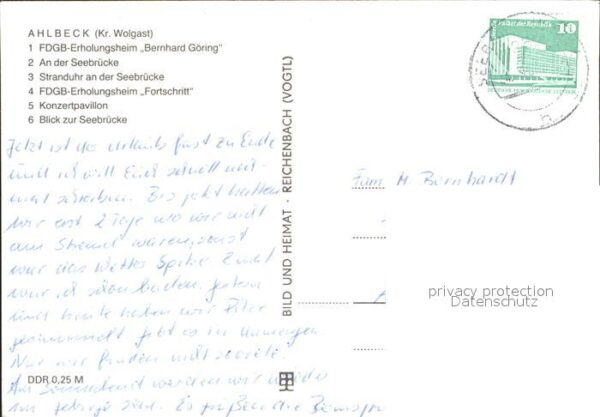 AHLBECK (Kr. Wolgast)
1 FDGB-Erholungsheim „Bernhard Göring"
2 An der Seebrücke
3 Stranduhr an der Seebrücke
4 FDGB-Erholungsheim „Fortschritt"
5 Konzertpavillon
6 Blick zur Seebrücke
Jetzt ist der Urlaub fast zu Ende
und ich will Euch schnell
mal schreiben. Bis jetzt hatten
wir erst 2 Tage wo wir nicht
am Strand waren, sonst
war das Wetter Spitze. 2 mal
war ich schon baden. Gestern
und heute haben wir Pilze
gesammelt gibt es in
Nur wir finden nicht soviele.
Am Sonnabend werden wir wieder
sein. Es grüßen die
DDR 0,25 M
BILD UND HEIMAT · REICHENBACH (VOGTL)
10
Palast der Republik
Fam M. Bernhardt
privacy protection
Datenschutz